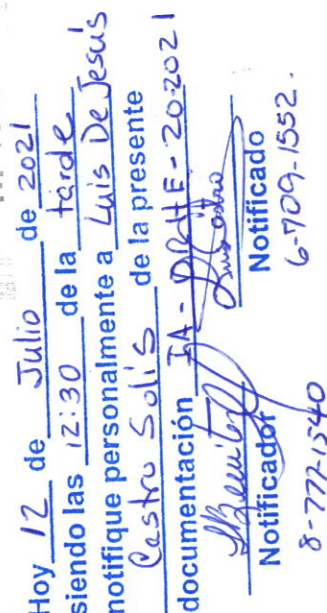 Hoy 12 de Julio de 2021
siendo las 12:30 de la tarde
notifique personalmente a Luis De Jesús
Castro Solís de la presente
documentación IA-DRHE-20-2021
Luis Castro
Notificador Notificado
8-777-1540 6-709-1552.